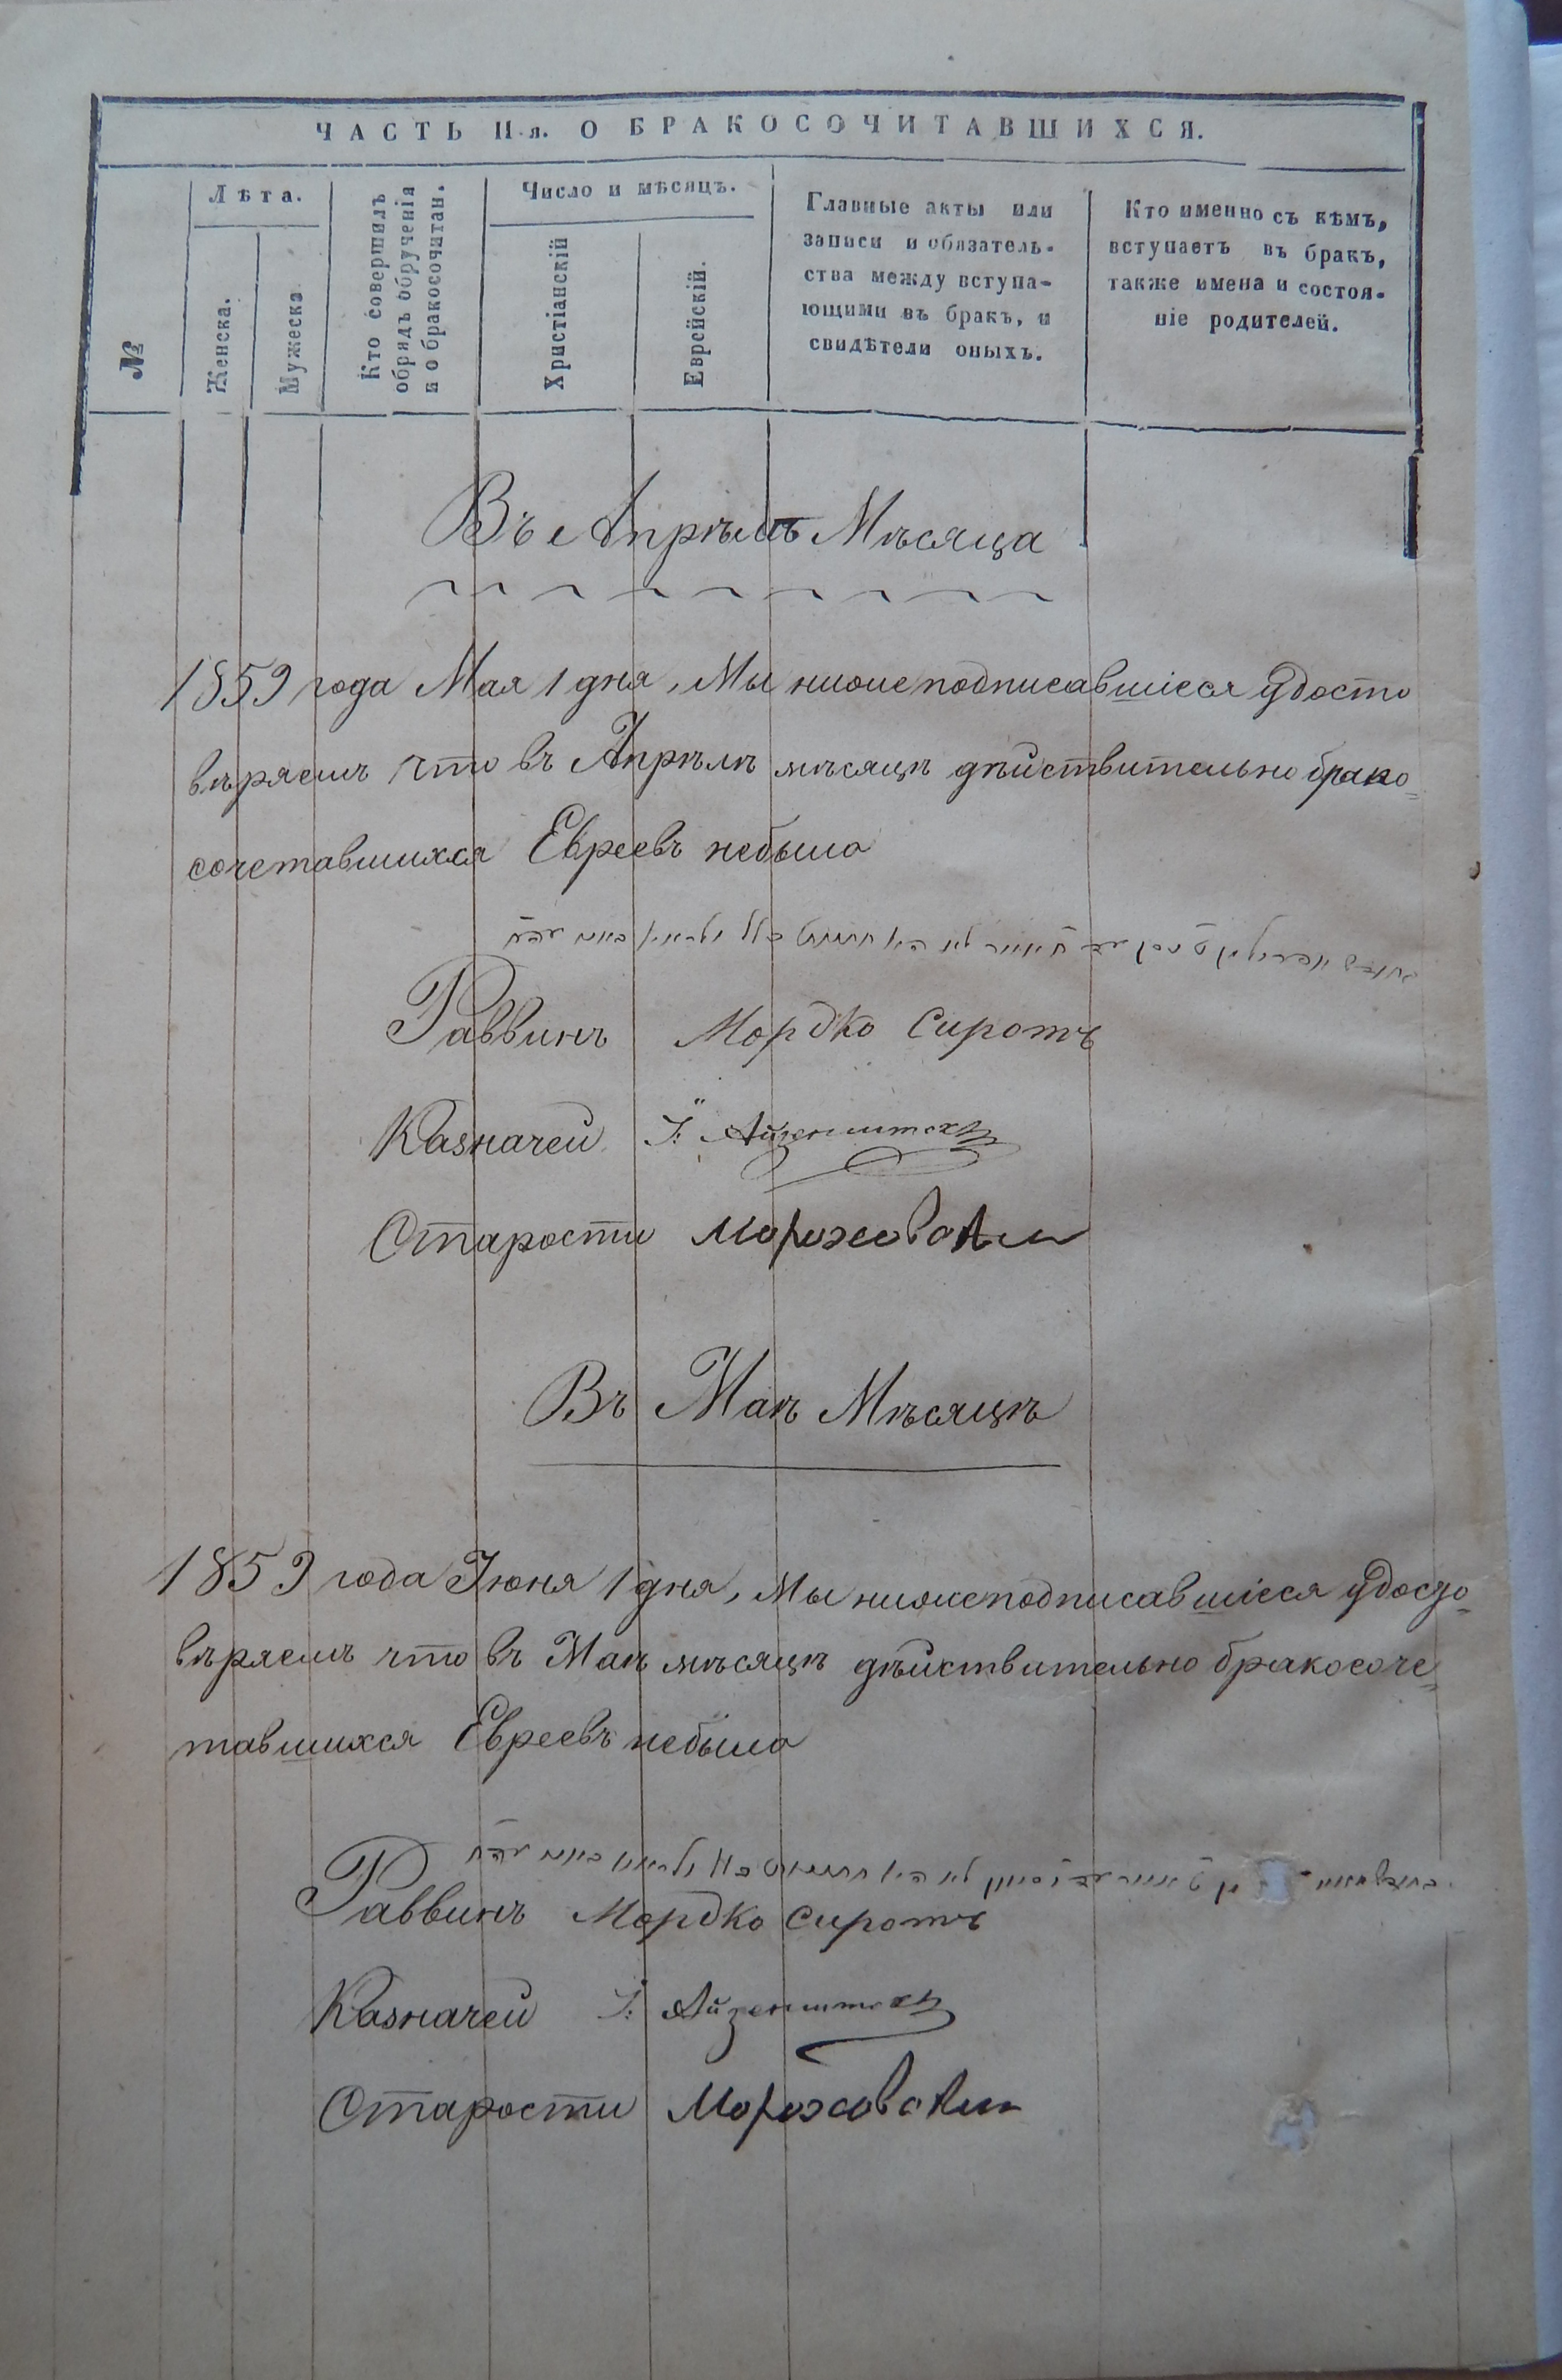 ЧАСТЬ II-я. О БРАКОСОЧИТАВШИХСЯ.
№
Лѣта.
Женска.
Мужеска
Кто совершилъ
обрядъ обрученія
и о бракосочитан.
Число и мѣсяцъ.
Христіанскій
Еврейскій.
Главные акты или
записи и обязатель-
ства между вступа-
ющими въ бракъ, и
свидѣтели оныхъ.
Кто именно съ кѣмъ,
вступаетъ въ бракъ,
также имена и состоя-
ніе родителей.
Въ Апрѣлѣ Мѣсяца
1859 года Мая 1 дня, Мы нижеподписавшіеся удосто
вѣряемъ что въ Апрѣлѣ мѣсяцѣ дѣйствительно брако=
сочетавшихся Евреевъ небыло
Раввинъ Мордко Сиротъ
Казначей І.
Старости
Въ Маѣ Мѣсяцѣ
1859 года Іюня 1 дня, Мы нижеподписавшіеся удосто=
вѣряемъ что въ Маѣ мѣсяцѣ дѣйствительно бракосоче=
тавшихся Евреевъ небыло
Раввинъ Мордко Сиротъ
Казначей І.
Старости